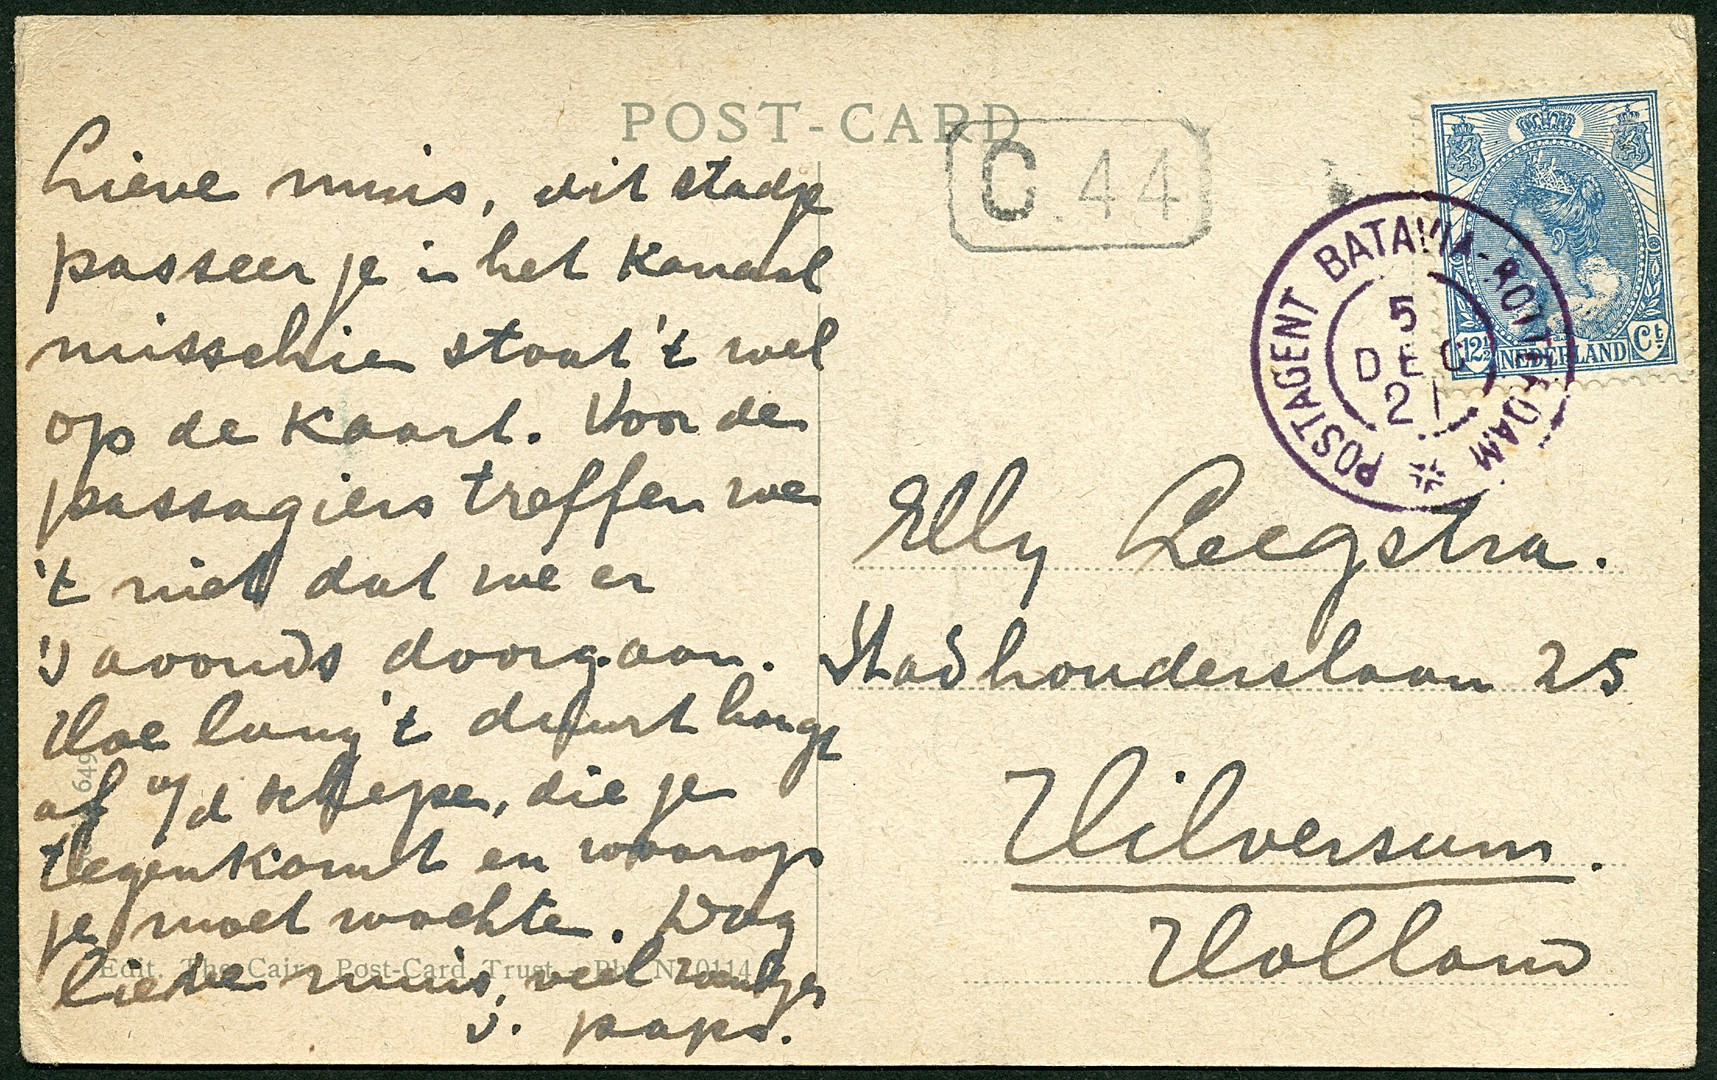 POST-CARD
C.44
POSTAGENT BATAVIA-ROTTERDAM
5
DEC
21
12½ NEDERLAND Ct
Lieve muis, dit stadje
passeer je in het Kanaal
misschien staat 't wel
op de Kaart. Voor de
passagiers treffen we
't niet dat we er
's avonds doorgaan.
Hoe lang 't duurt hangt
af o/d schepen, die je
tegenkomt en waarop
je moet wachten. Dag
lieve muis, veel zoentjes
v. paps.
Elly Leegstra.
Stadhouderslaan 25
Hilversum.
Holland
649
Edit. The Cairo Post-Card Trust - Pb. N. 10114